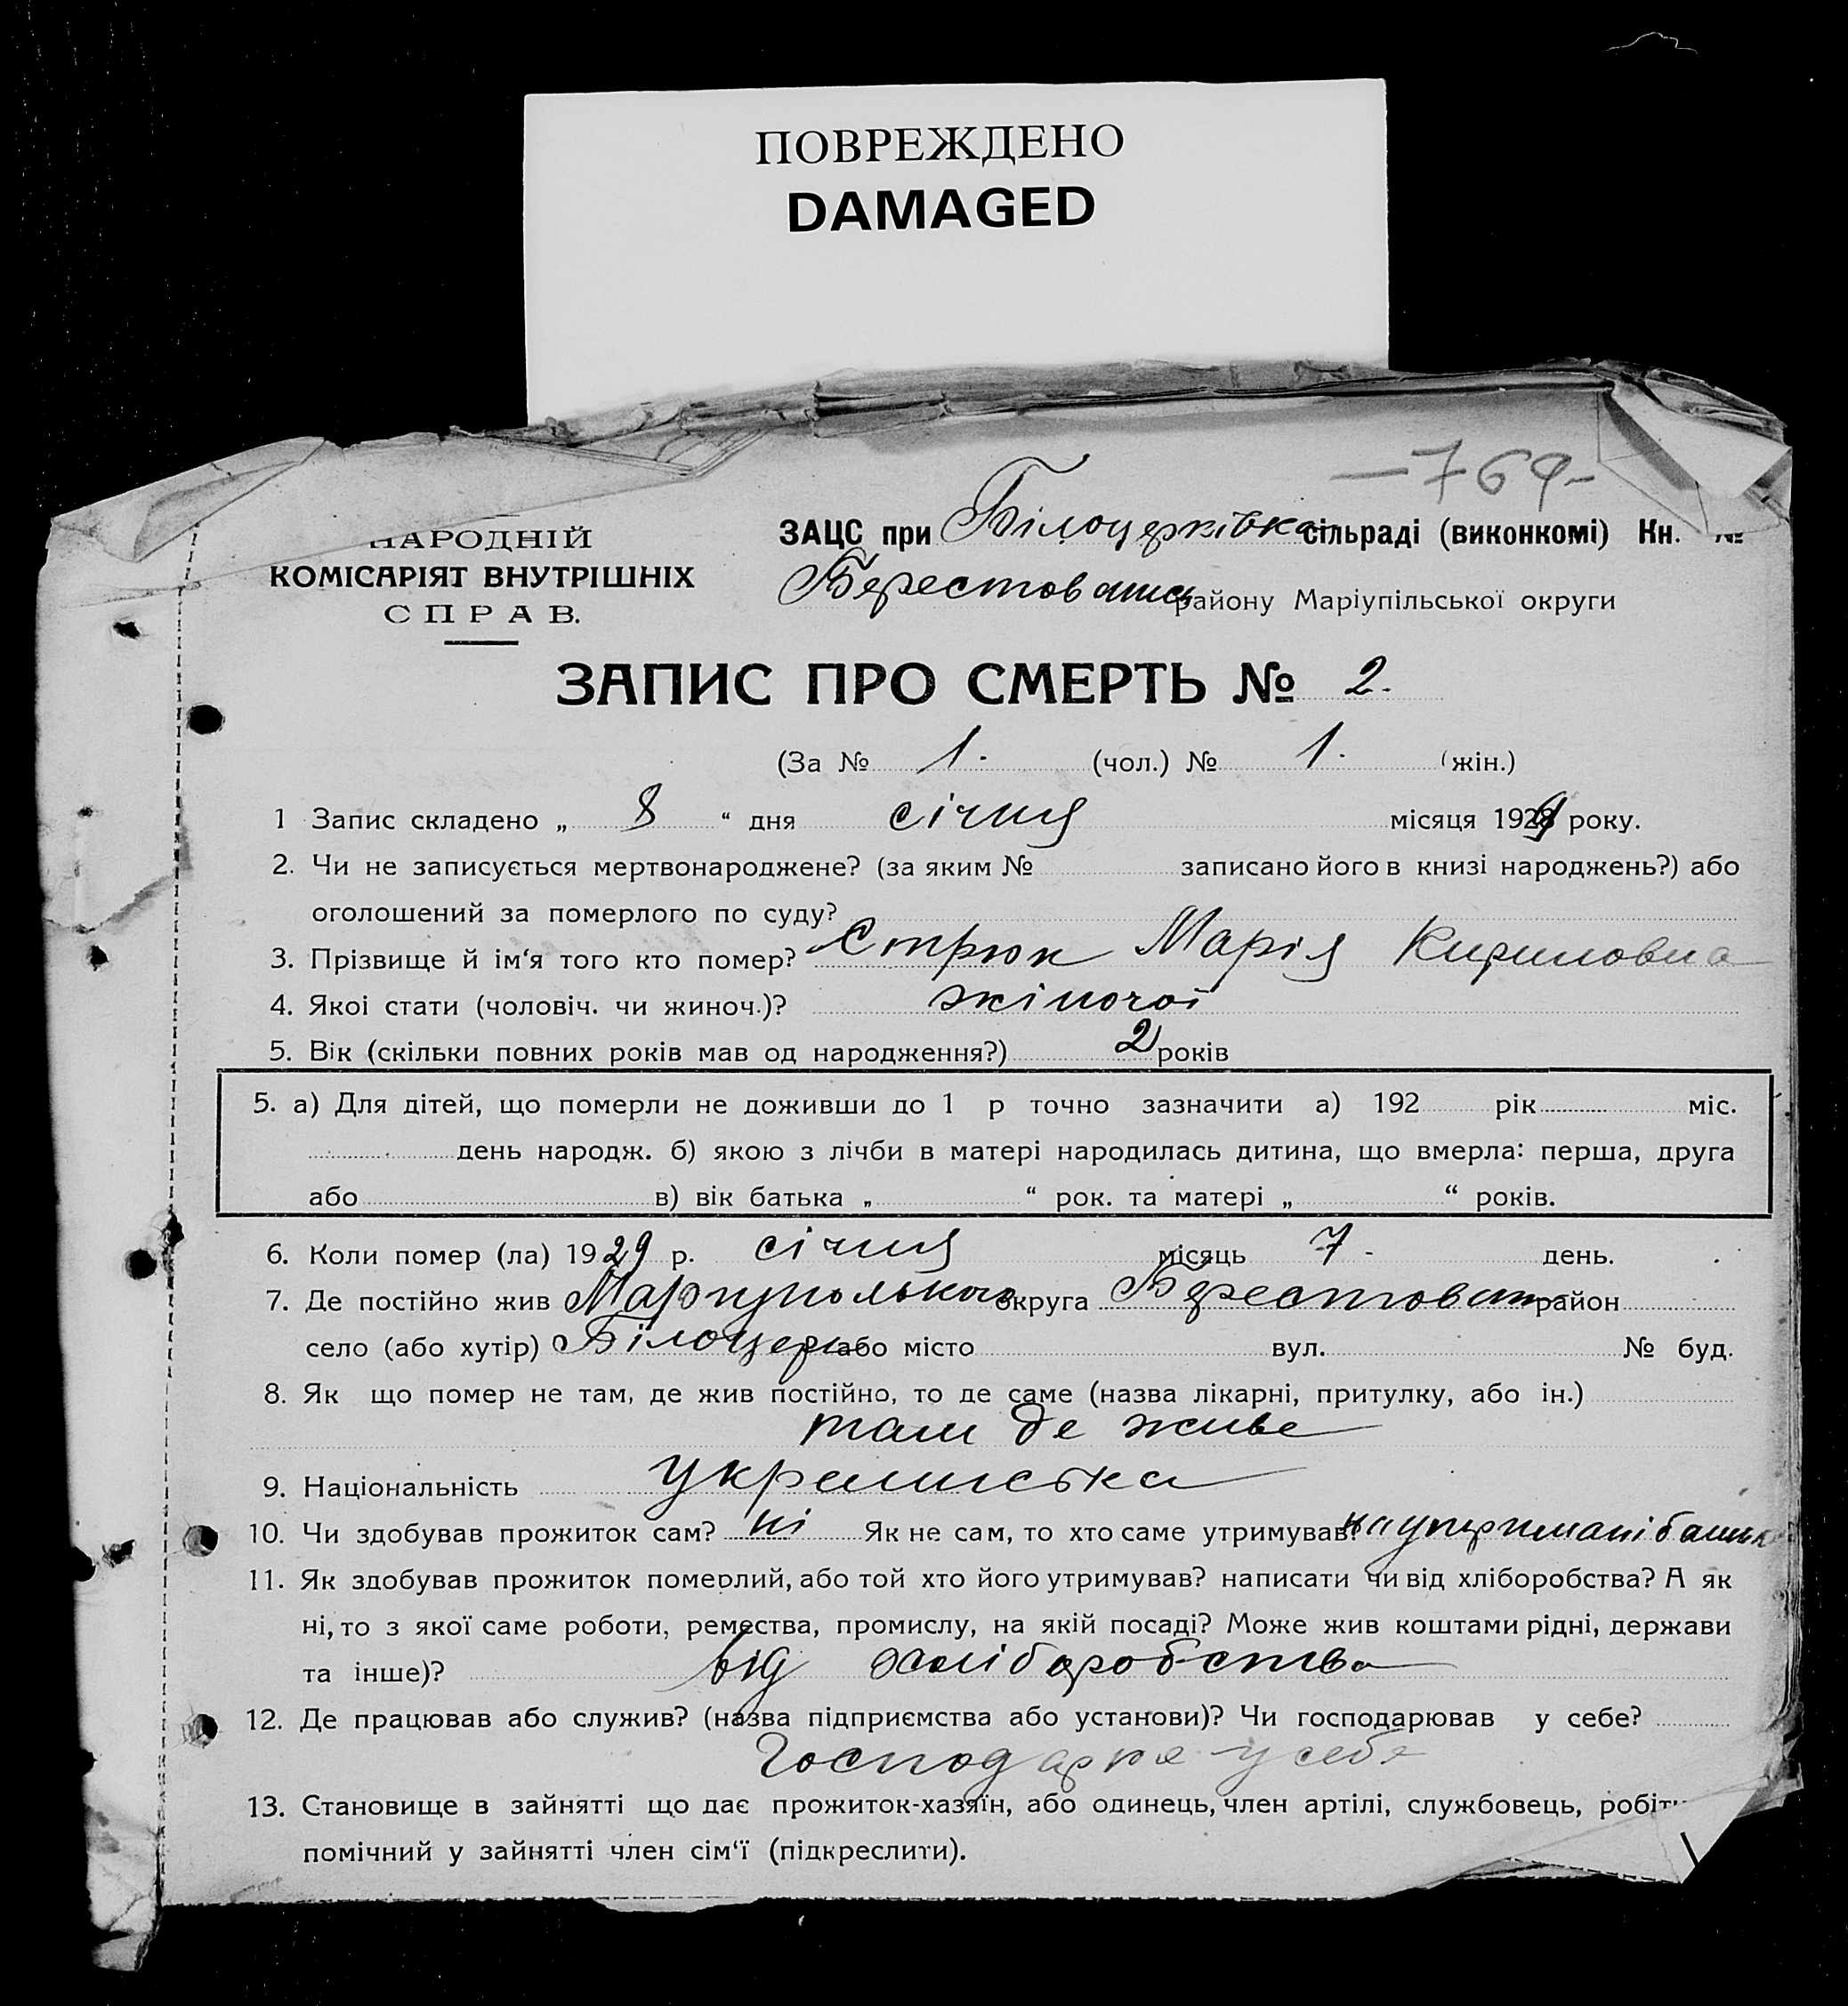 ПОВРЕЖДЕНО
DAMAGED
—769-
НАРОДНІЙ
КОМІСАРІЯТ ВНУТРІШНІХ
СПРАВ.
ЗАЦС при Білоцерківка сільраді (виконкомі) Кн. №
району Маріупільської округи
ЗАПИС ПРО СМЕРТЬ № 2.
(За № 1. (чол.) № 1. (жін.)
1 Запис складено „ 8 “ дня січня місяця 1929 року.
2. Чи не записується мертвонароджене? (за яким № записано його в книзі народжень?) або
оголошений за померлого по суду?
3. Прізвище й ім‘я того кто помер? Стрюк Марія Кириловна
4. Якоі стати (чоловіч. чи жиноч.)? жіночоі
5. Вік (скільки повних років мав од народження?) 2 років
5. а) Для дітей, що померли не доживши до 1 р точно зазначити а) 192 рік міс.
день народж. б) якою з лічби в матері народилась дитина, що вмерла: перша, друга
або в) вік батька „ “ рок. та матері „ “ років.
6. Коли помер (ла) 1929 р. січня місяць 7 - день.
7. Де постійно жив округа район
село (або хутір) Білоцерк або місто вул. № буд.
8. Як що помер не там, де жив постійно, то де саме (назва лікарні, притулку, або ін.)
там де живе
9. Національність украинська
10. Чи здобував прожиток сам? ні Як не сам, то хто саме утримував? на утримані батька
11. Як здобував прожиток померлий, або той хто його утримував? написати чи від хліборобства? А як
ні, то з якої саме роботи, ремества, промислу, на якій посаді? Може жив коштами рідні, держави
та інше)? від хліборобства
12. Де працював або служив? (назва підприємства або установи)? Чи господарював у себе?
Господарює у себе
13. Становище в зайнятті що дає прожиток-хазяїн, або одинець, член артілі, службовець,
помічний у зайнятті член сім‘ї (підкреслити).